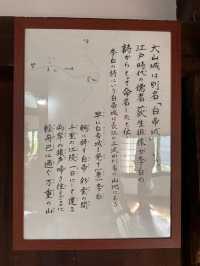 犬山城は別名「白帝城」
江戸時代の儒者 荻生徂徠が李白の
詩からとって命名したと伝
李白の詩にいう白帝城は長江の上流の丘の山地にある
早に白帝城を発す(李 白)
朝に辞す白帝彩雲の間
千里の江陵一日にして還る
両岸の猿声啼き住まざるに
軽舟已に過ぐ万重の山